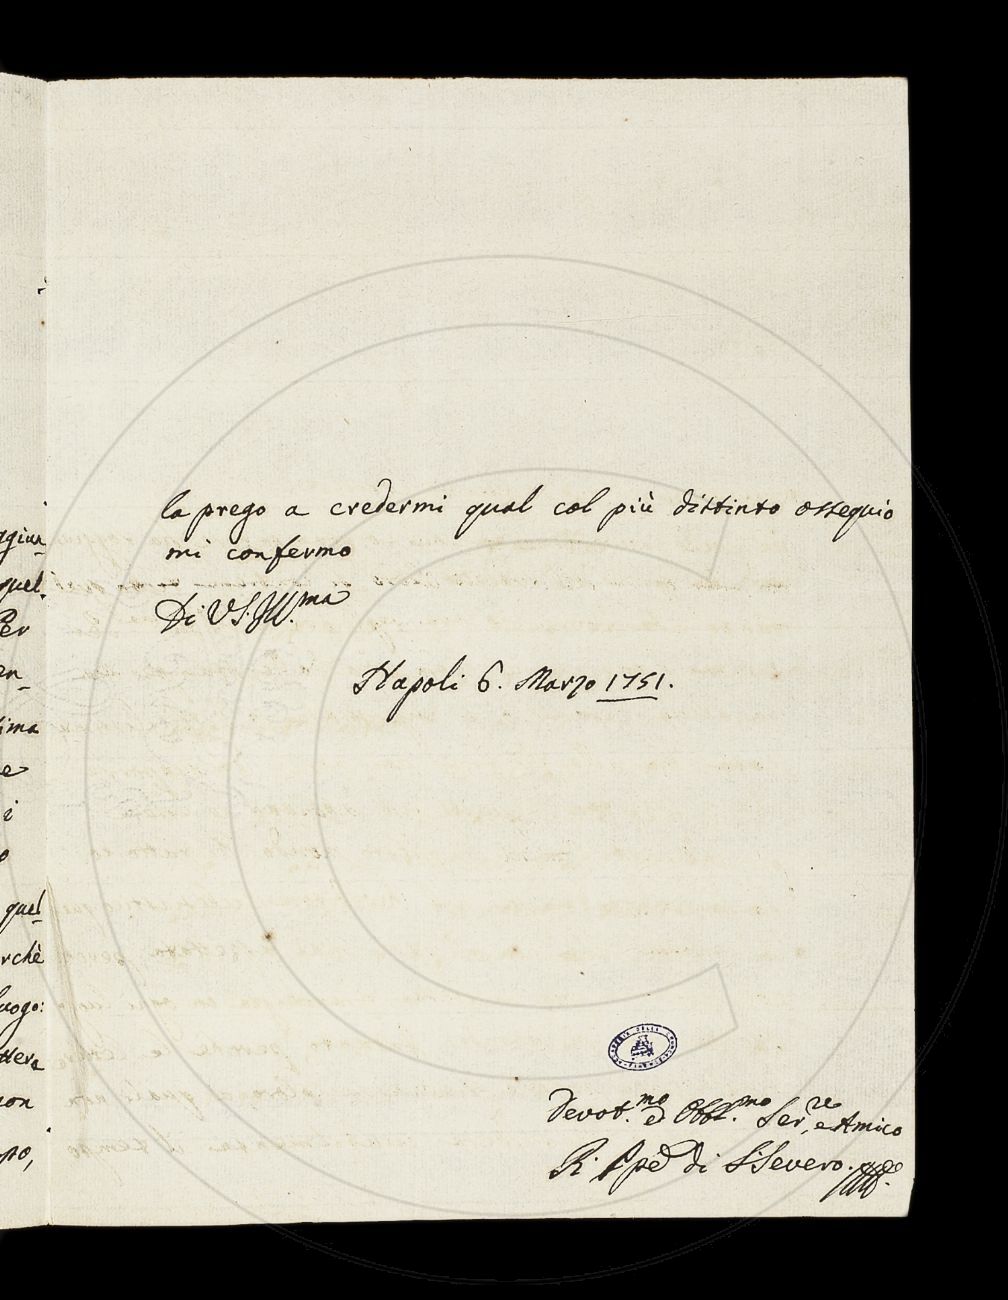 ggiun_
quel_
Per
en_
tima
e
i
o
quel_
rchè
luogo:
ttera
non
po,
la prego a credermi qual col più distinto ossequio
mi confermo
Di VS. Ill.ma
Napoli 6. Marzo 1751.
Devot.mo ed Obbl.mo Ser.re e Amico
R. Ppe di S. Severo.